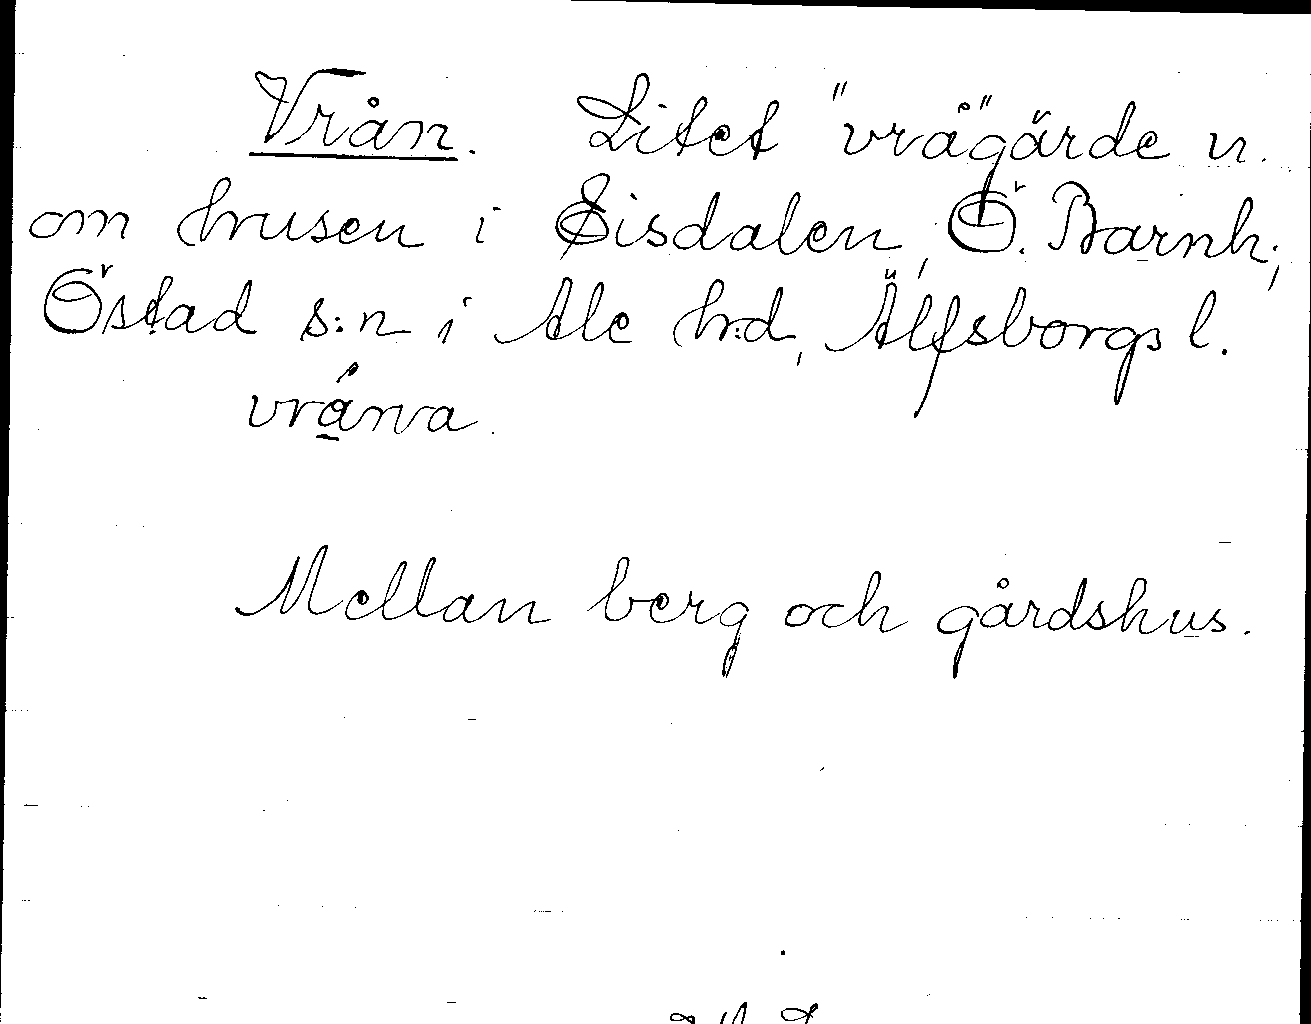 Vrån. Litet "vrå"gärde n.
om husen i Sisdalen, Ö. Barnh.,
Östad s:n i Ale h:d, Älfsborgs l.
vrǻna
Mellan berg och gårdshus.